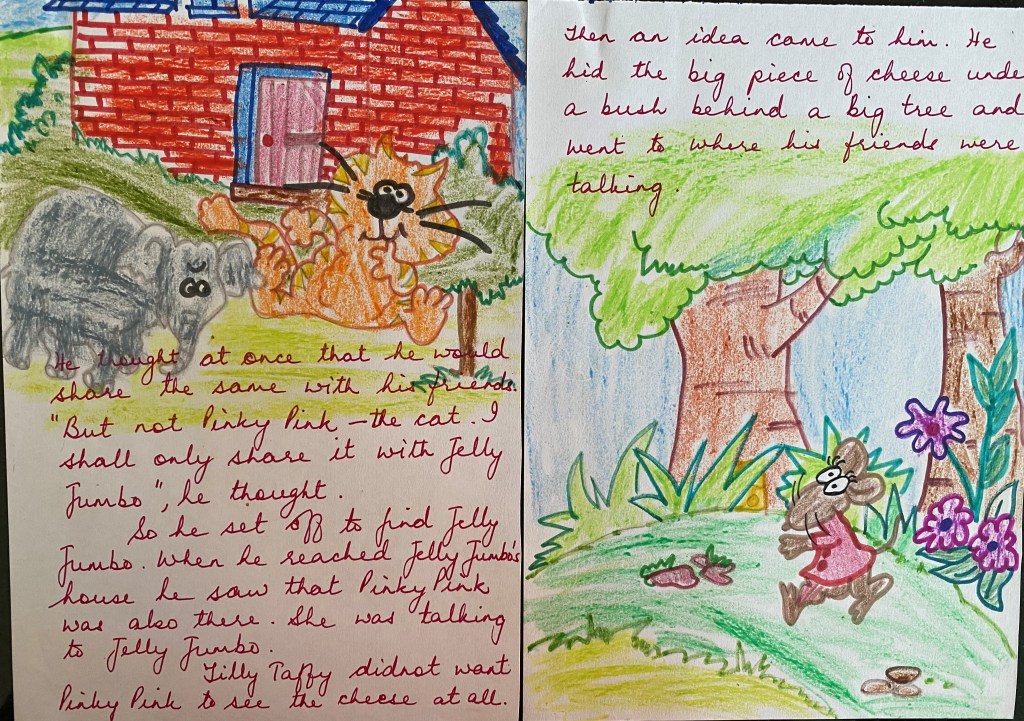 He thought at once that he would
share the same with his friends.
"But not Pinky Pink – the cat. I
shall only share it with Jelly
Jumbo", he thought.
So he set off to find Jelly
Jumbo. When he reached Jelly Jumbo's
house he saw that Pinky Pink
was also there. She was talking
to Jelly Jumbo.
Tilly Taffy didnot want
Pinky Pink to see the cheese at all.
Then an idea came to him. He
hid the big piece of cheese unde
a bush behind a big tree and
went to where his friends were
talking.